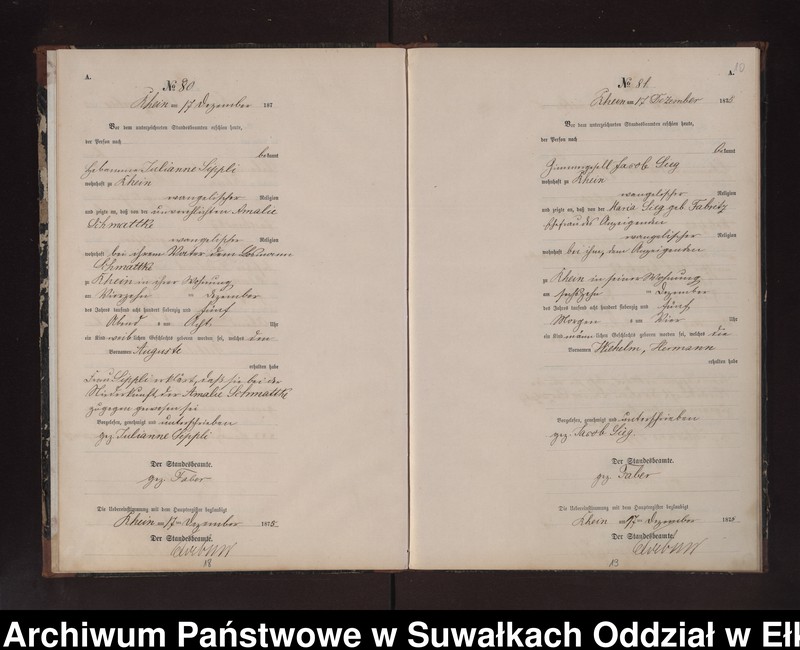 A.
№ 80
Rhein am 17 Dezember 187
Vor dem unterzeichneten Standesbeamten erschien heute,
der Person nach
bekannt
Hebamme Julianne Sippli
wohnhaft zu Rhein
evangelischer Religion
und zeigte an, daß von der unverehlichten Amalie
Schmattke
evangelischer Religion
wohnhaft bei ihrem Vater dem
Schmattke
zu Rhein in ihrer Wohnung
am Vierzehn ten Dezember
des Jahres tausend acht hundert siebenzig und fünf
Abend s um Acht Uhr
ein Kind weib lichen Geschlechts geboren worden sei, welches den
Vornamen Auguste
erhalten habe
Frau Sippli erklärt, daß sie bei der
Niederkunft der Amalie Schmattke
zugegen gewesen sei
Vorgelesen, genehmigt und unterschrieben
gez. Julianne Sippli
Der Standesbeamte.
gez. Faber
Die Uebereinstimmung mit dem Hauptregister beglaubigt
Rhein am 17ten Dezember 1875.
Der Standesbeamte.
18
A.
№ 81
Rhein am 17 Dezember 1875.
Vor dem unterzeichneten Standesbeamten erschien heute,
der Person nach
bekannt
Zimmergesell Jacob Sieg
wohnhaft zu Rhein
evangelischer Religion
und zeigte an, daß von der Maria Sieg geb. Fabritz
Ehefrau des Anzeigenden
evangelischer Religion
wohnhaft bei ihm, dem Anzeigenden
zu Rhein in seiner Wohnung
am sechszehn ten Dezember
des Jahres tausend acht hundert siebenzig und fünf
Morgen s um Vier Uhr
ein Kind männ lichen Geschlechts geboren worden sei, welches die
Vornamen Wilhelm, Hermann
erhalten habe
Vorgelesen, genehmigt und unterschrieben
gez. Jacob Sieg.
Der Standesbeamte.
gez. Faber
Die Uebereinstimmung mit dem Hauptregister beglaubigt
Rhein am 17ten Dezember 1875.
Der Standesbeamte.
13
Archiwum Państwowe w Suwałkach Oddział w Ełk